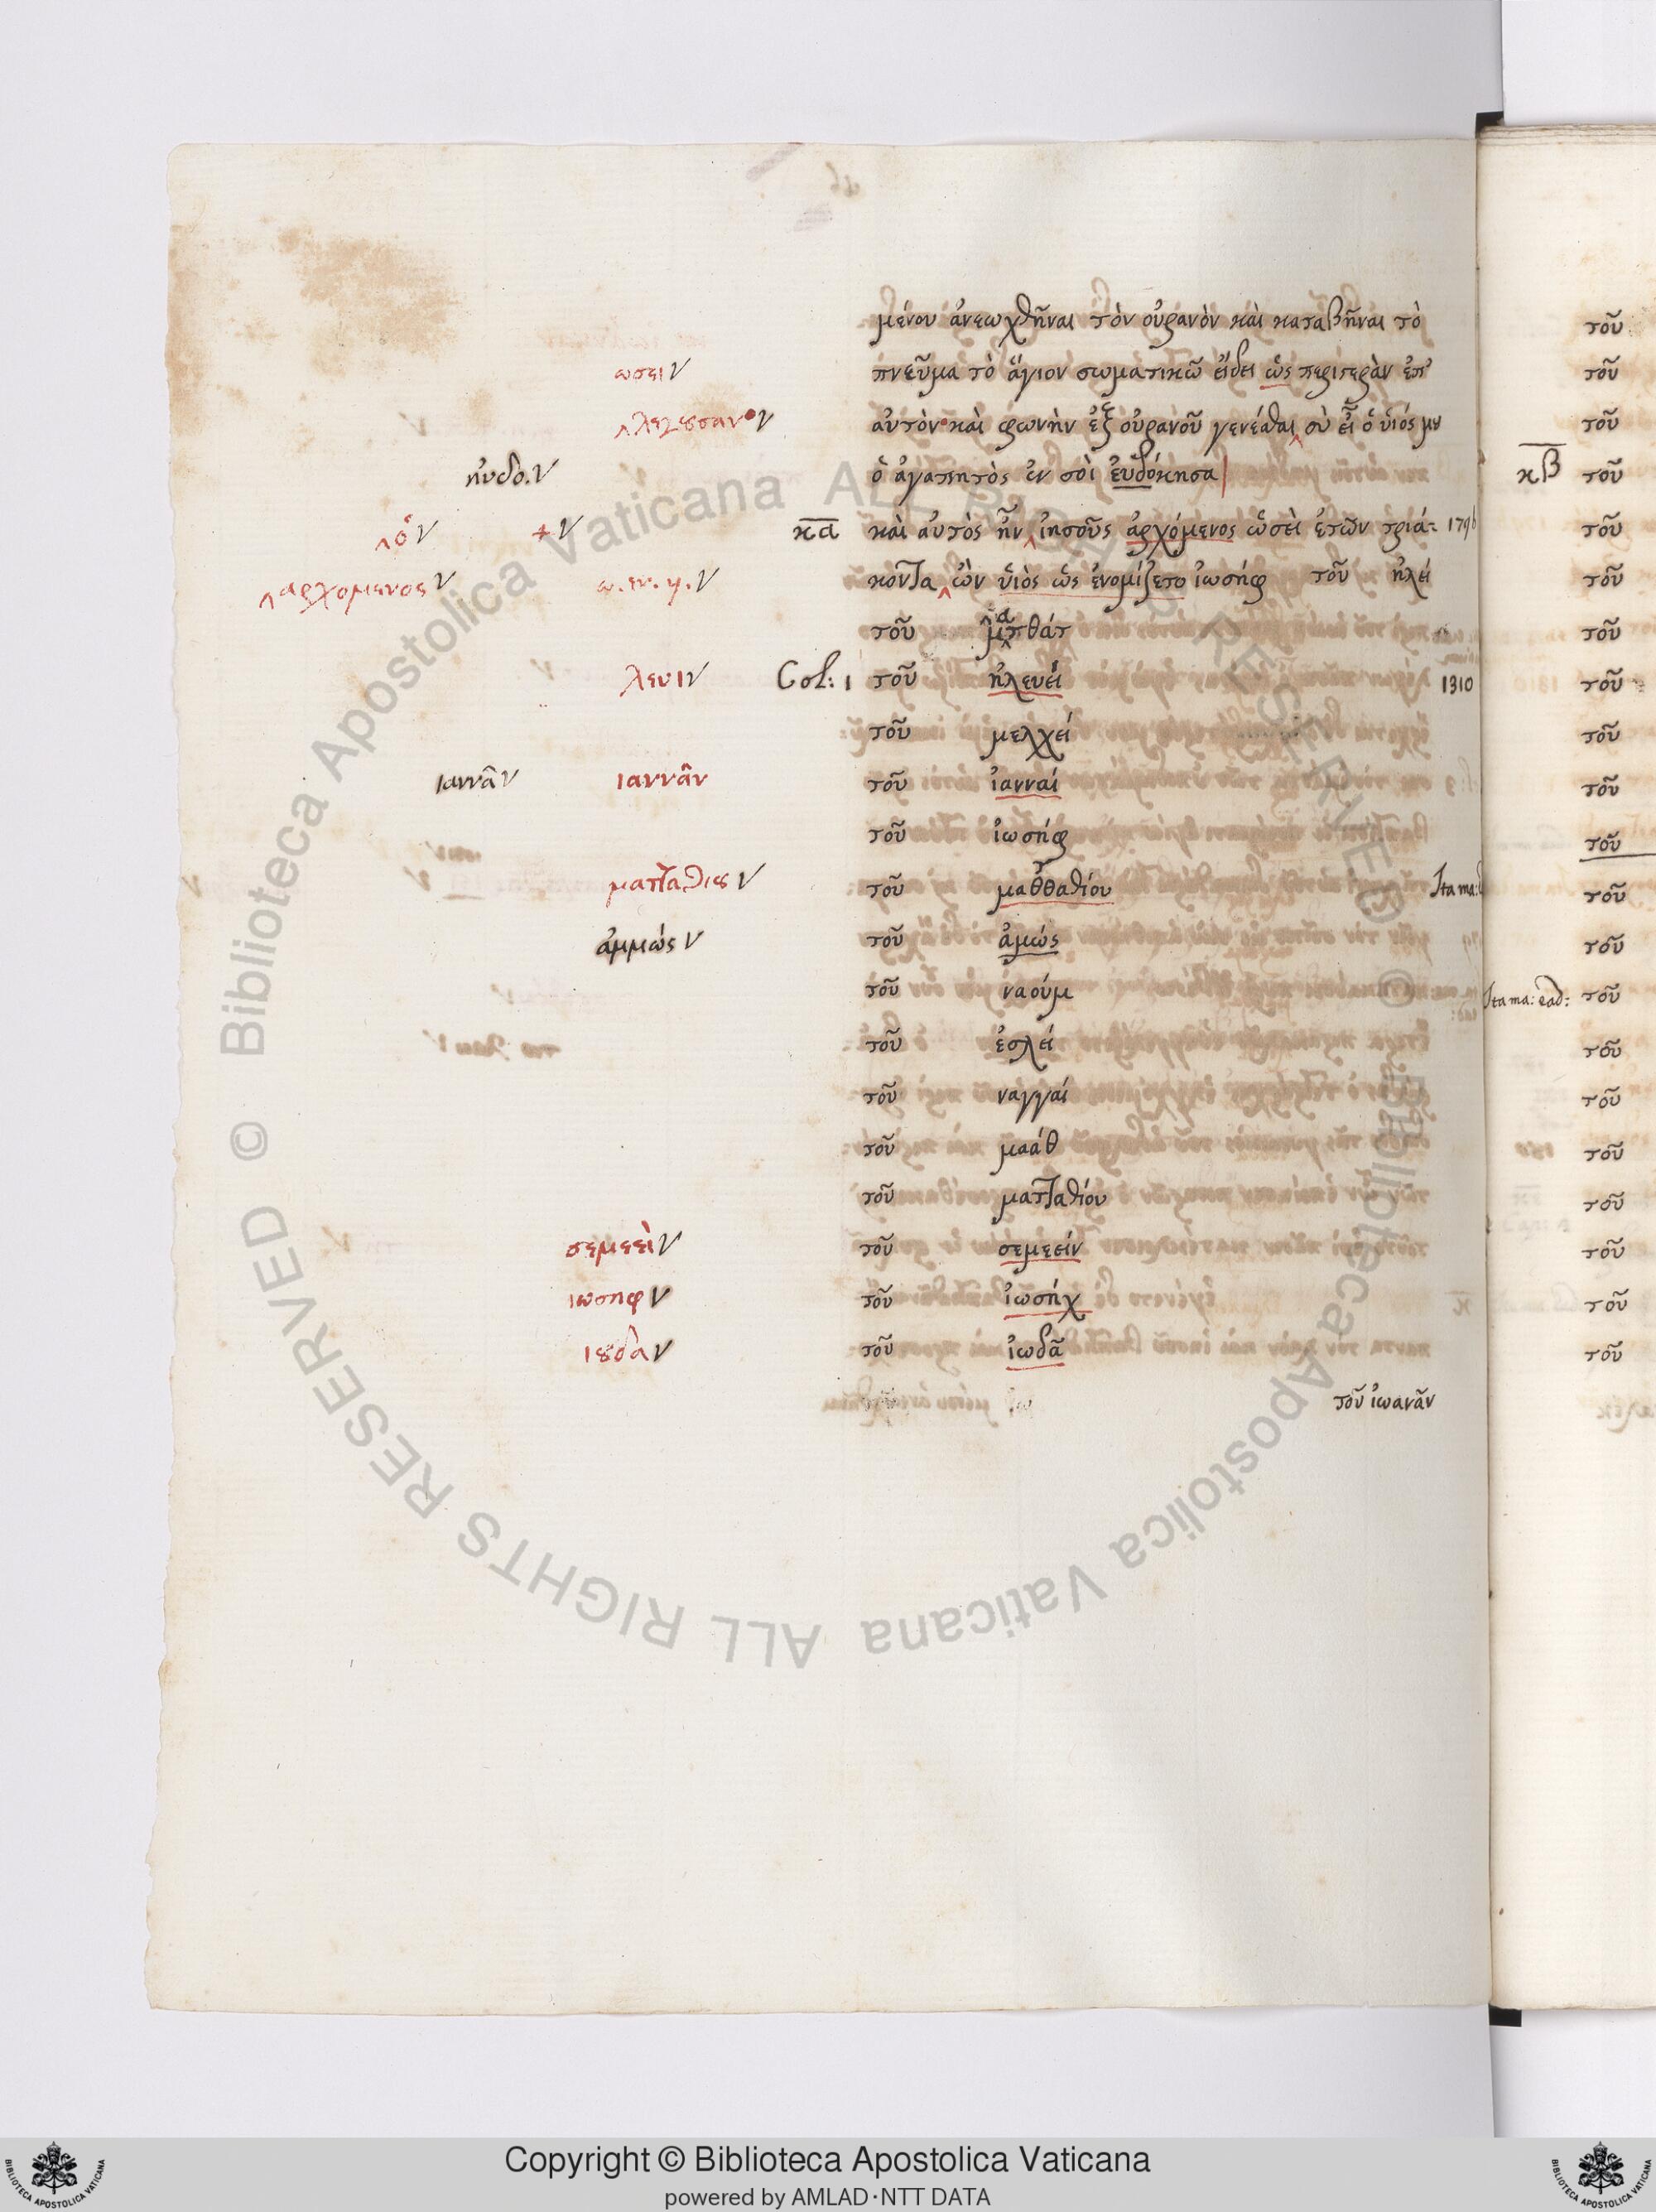 μένου ἀνεωχθῆναι τὸν οὐρανὸν καὶ καταβῆναι τὸ
ωσει πνεῦμα τὸ ἅγιον σωματικῶ εἴδει ὡς περιστερὰν ἐπ'
λεγουσαν αὐτὸν καὶ φωνὴν ἐξ οὐρανοῦ γενέσθαι σὺ εἶ ὁ ὑιός μου
ηὐδο. ὁ ἀγαπητὸς ἐν σοὶ εὐδόκησα
ὁ + κα καὶ αὐτὸς ἦν ἰησοῦς ἀρχόμενος ὡσεὶ ἐτῶν τριά: 179b
αρχομενος ω. εν. υ. κοντα ὢν ὑιὸς ὡς ἐνομίζετο ἰωσήφ τοῦ ἡλεί
τοῦ ματθάτ
λευι Col: 1 τοῦ ἠλευεί 1310
τοῦ μελχεί
ιαννᾶ ιαννᾶν τοῦ ἰανναί
τοῦ ἰωσήφ
ματταθιου τοῦ μαθθαθίου Ita ma:
ἀμμώς τοῦ ἀμώς
τοῦ ναούμ
τοῦ ἐσλεί
τοῦ ναγγαί
τοῦ μαάθ
τοῦ ματταθίου
σεμεεὶ τοῦ σεμεείν
ιωσηφ τοῦ ἰωσήχ
ιουδα τοῦ ἰωδᾶ
τοῦ ἰωανᾶν
τοῦ
τοῦ
τοῦ
κβ τοῦ
τοῦ
τοῦ
τοῦ
τοῦ
τοῦ
τοῦ
τοῦ
τοῦ
τοῦ
Ita ma: ead: τοῦ
τοῦ
τοῦ
τοῦ
τοῦ
τοῦ
τοῦ
τοῦ
© Biblioteca Apostolica Vaticana ALL RIGHTS RESERVED © Biblioteca Apostolica Vaticana ALL RIGHTS RESERVED
Copyright © Biblioteca Apostolica Vaticana
powered by AMLAD·NTT DATA
BIBLIOTECA APOSTOLICA VATICANA
BIBLIOTECA APOSTOLICA VATICANA